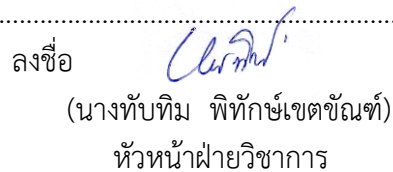 ลงชื่อ
(นางทับทิม พิทักษ์เขตขัณฑ์)
หัวหน้าฝ่ายวิชาการ